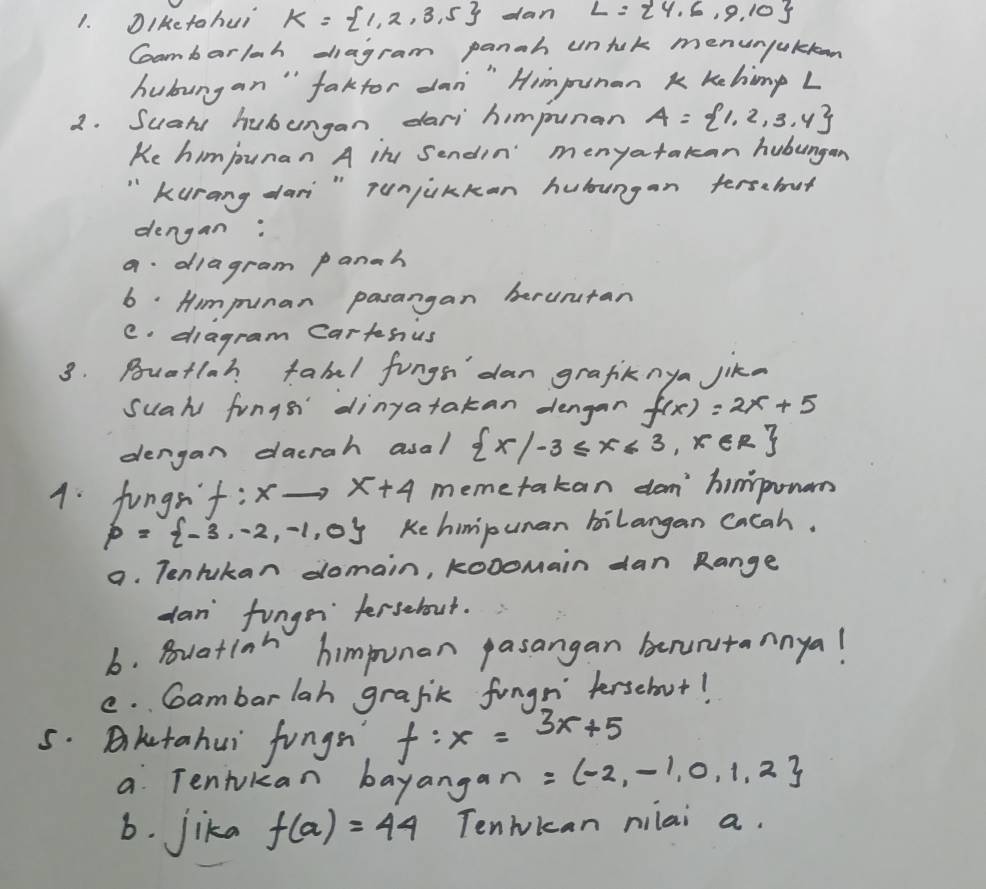 1. Diketahui K = {1,2,3,5} dan L = {4,6,9,10}
Gambarlah diagram panah untuk menunjukkan
hubungan "faktor dari" Himpunan K ke himp L
2. Suatu hubungan dari himpunan A = {1,2,3,4}
Ke himpunan A itu sendiri menyatakan hubungan
"Kurang dari" Tunjukkan hubungan tersebut
dengan :
a. diagram panah
b. Himpunan pasangan berurutan
c. diagram Cartesius
3. Buatlah tabel fungsi dan grafiknya jika
suatu fungsi dinyatakan dengan f(x) = 2x + 5
dengan daerah asal {x/-3 ≤ x ≤ 3, x ∈ R}
4. fungsi f : x → x+4 memetakan dari himpunan
p = {-3,-2,-1,0} Ke himpunan bilangan cacah.
a. Tentukan domain, KODOMain dan Range
dari fungsi tersebut.
b. Buatlah himpunan pasangan berurutannya!
c. Gambar lah grafik fungsi tersebut!
5. Diketahui fungsi f : x = 3x+5
a. Tentukan bayangan = (-2,-1,0,1,2}
b. jika f(a) = 44 Tentukan nilai a.